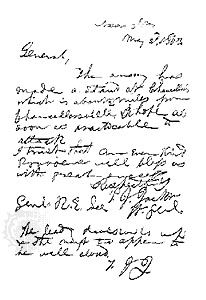 Near 3 P.M.
May 2d, 1863
General,
The enemy has
made a stand at Chancellor's
which is about 2 miles from
Chancellorsville. I hope as
soon as practicable to
attack
I trust that an ever kind
Providence will bless us
with great success.
Respectfully
T. J. Jackson
Genl. R. E. Lee
Lt. Genl.
The leading division is up
& the next two appear to
be well closed
T. J. J.